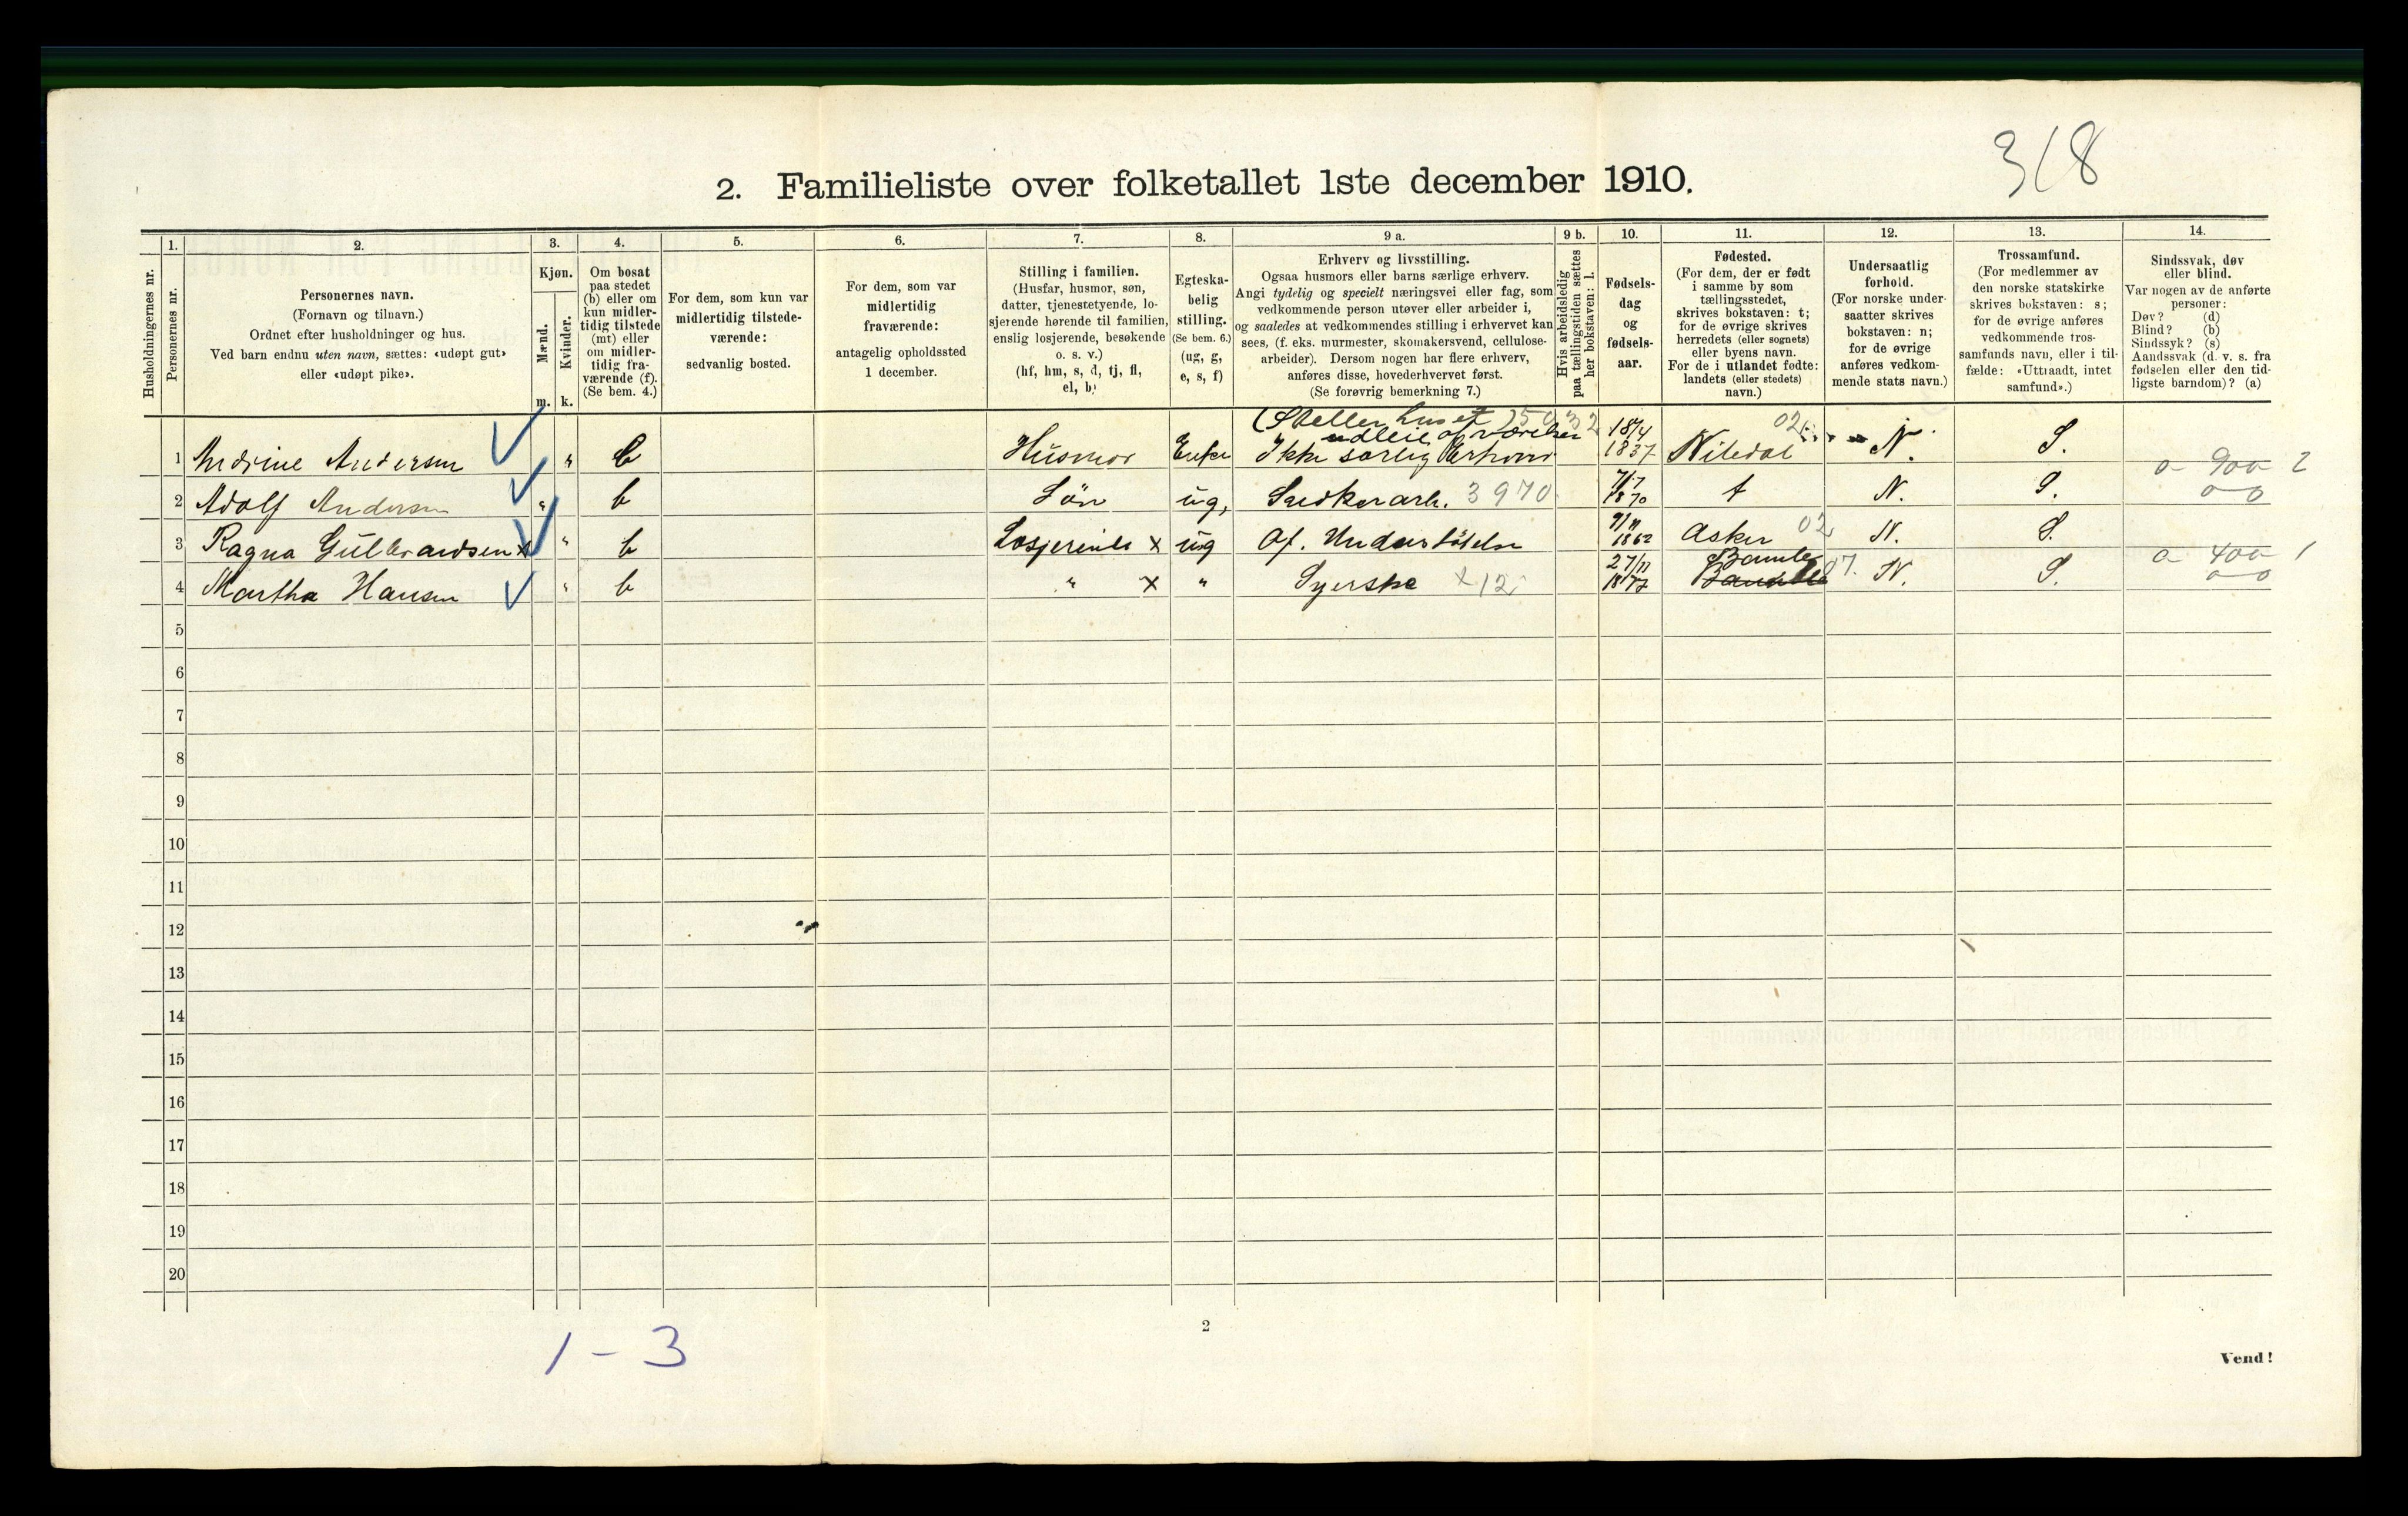 318
2. Familieliste over folketallet 1ste december 1910.
Husholdningernes nr.
1.
Personernes nr.
2.
Personernes navn.
(Fornavn og tilnavn.)
Ordnet efter husholdninger og hus.
Ved barn endnu uten navn, sættes: «udøpt gut»
eller «udøpt pike».
3.
Kjøn.
Mænd.
Kvinder.
m. k.
4.
Om bosat
paa stedet
(b) eller om
kun midler-
tidig tilstede
(mt) eller
om midler-
tidig fra-
værende (f).
(Se bem. 4.)
5.
For dem, som kun var
midlertidig tilstede-
værende:
sedvanlig bosted.
6.
For dem, som var
midlertidig
fraværende:
antagelig opholdssted
1 december.
7.
Stilling i familien.
(Husfar, husmor, søn,
datter, tjenestetyende, lo-
sjerende hørende til familien,
enslig losjerende, besøkende
o. s. v.)
(hf, hm, s, d, tj, fl,
el, b)
8.
Egteska-
belig
stilling.
(Se bem. 6.)
(ug, g,
e, s, f)
9 a.
Erhverv og livsstilling.
Ogsaa husmors eller barns særlige erhverv.
Angi tydelig og specielt næringsvei eller fag, som
vedkommende person utøver eller arbeider i,
og saaledes at vedkommendes stilling i erhvervet kan
sees, (f. eks. murmester, skomakersvend, cellulose-
arbeider). Dersom nogen har flere erhverv,
anføres disse, hovederhvervet først.
(Se forøvrig bemerkning 7.)
9 b.
Hvis arbeidsledig
paa tællingstiden sættes
her bokstaven: l.
10.
Fødsels-
dag
og
fødsels-
aar.
11.
Fødested.
(For dem, der er født
i samme by som
tællingsstedet,
skrives bokstaven: t;
for de øvrige skrives
herredets (eller sognets)
eller byens navn.
For de i utlandet fødte:
landets (eller stedets)
navn.)
12.
Undersaatlig
forhold.
(For norske under-
saatter skrives
bokstaven: n;
for de øvrige
anføres vedkom-
mende stats navn.)
13.
Trossamfund.
(For medlemmer av
den norske statskirke
skrives bokstaven: s;
for de øvrige anføres
vedkommende tros-
samfunds navn, eller i til-
fælde: «Uttraadt, intet
samfund».)
14.
Sindssvak, døv
eller blind.
Var nogen av de anførte
personer:
Døv? (d)
Blind? (b)
Sindssyk? (s)
Aandssvak (d. v. s. fra
fødselen eller den tid-
ligste barndom)? (a)
(Steller huset) 5032
udleie af værelser
1 Andersen " b Husmor Enke Ikke særlig Erhverv 18/4 1837 Nitedal 02 N. S.
0 900 2
2 Adolf Andersen " b Sön ug, Snedkerarb. 3970 7/7 1870 t N. S. 0 0
3 Ragna Gulbrandsen x " b Losjerende x ug Af. Understöttelse 1862 Asker 02 N. S.
0 400 1
4 Martha Hansen " b " x " Syerske x 12 27/11 Bamble 07. N. S. 0 0
5
6
7
8
9
10
11
12
13
14
15
16
17
18
19
20
1 - 3
2
Vend!